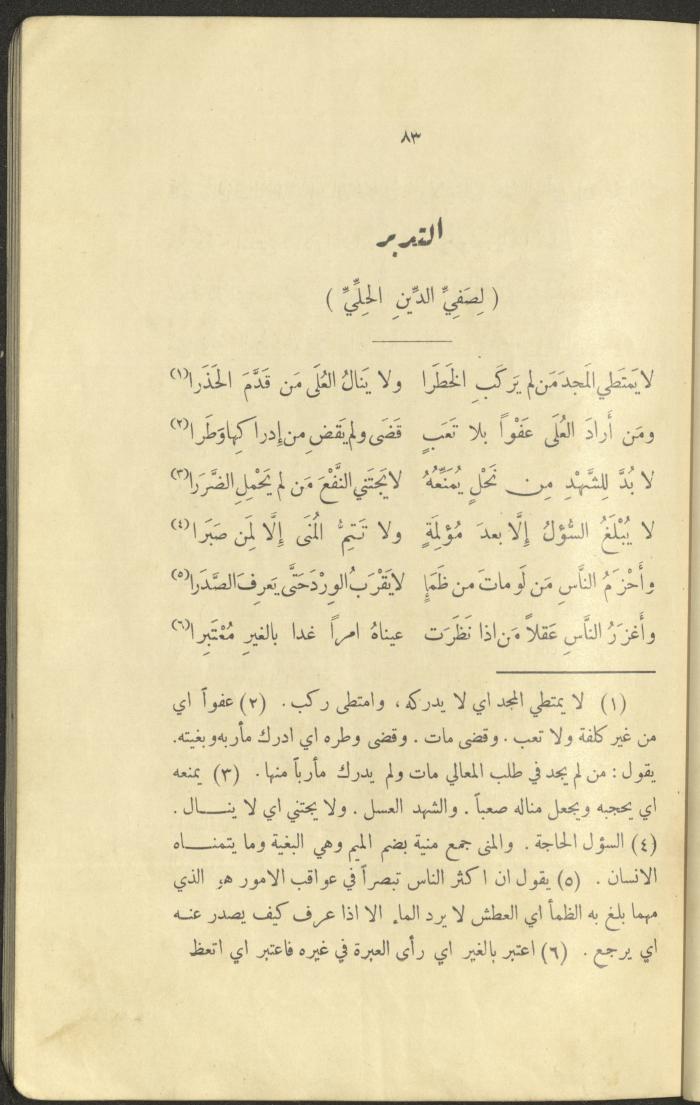 ٨٣
التدبر
( لِصَفِيِّ الدِّينِ الحِلِّيِّ )
لا يَمتَطي المَجدَ مَن لم يَركَبِ الخَطَرا ولا يَنالُ العُلَى مَن قَدَّمَ الحَذَرا(١)
ومَن أَرادَ العُلَى عَفْواً بلا تَعَبٍ قَضَى ولم يَقضِ من إدراكِها وَطَرا(٢)
لا بُدَّ لِلشَّهْدِ مِن نَحْلٍ يُمَنِّعُهُ لا يَجتَني النَّفْعَ مَن لم يَحْمِلِ الضَّرَرا(٣)
لا يُبْلَغُ السُّؤلُ إلَّا بعدَ مُؤلِمَةٍ ولا تَتِمُّ المُنَى إلَّا لِمَن صَبَرا(٤)
وأَحْزَمُ النَّاسِ مَن لَو ماتَ من ظَمَإٍ لا يَقْرَبُ الوِرْدَ حَتَّى يَعرِفَ الصَّدَرا(٥)
وأَغزَرُ النَّاسِ عَقلاً مَن اذا نَظَرَت عيناهُ امراً غدا بالغيرِ مُعْتَبِرا(٦)
(١) لا يمتطي المجد اي لا يدركه، وامتطى ركب. (٢) عفواً اي
من غير كلفة ولا تعب. وقضى مات. وقضى وطره اي ادرك مأربه وبغيته.
يقول: من لم يجد في طلب المعالي مات ولم يدرك مأرباً منها. (٣) يمنعه
اي يحجبه ويجعل مناله صعباً. والشهد العسل. ولا يجتني اي لا ينـــال.
(٤) السؤل الحاجة. والمنى جمع منية بضم الميم وهي البغية وما يتمنـــاه
الانسان. (٥) يقول ان اكثر الناس تبصراً في عواقب الامور هو الذي
مهما بلغ به الظمأ اي العطش لا يرد الماء الا اذا عرف كيف يصدر عنـه
اي يرجع. (٦) اعتبر بالغير اي رأى العبرة في غيره فاعتبر اي اتعظ